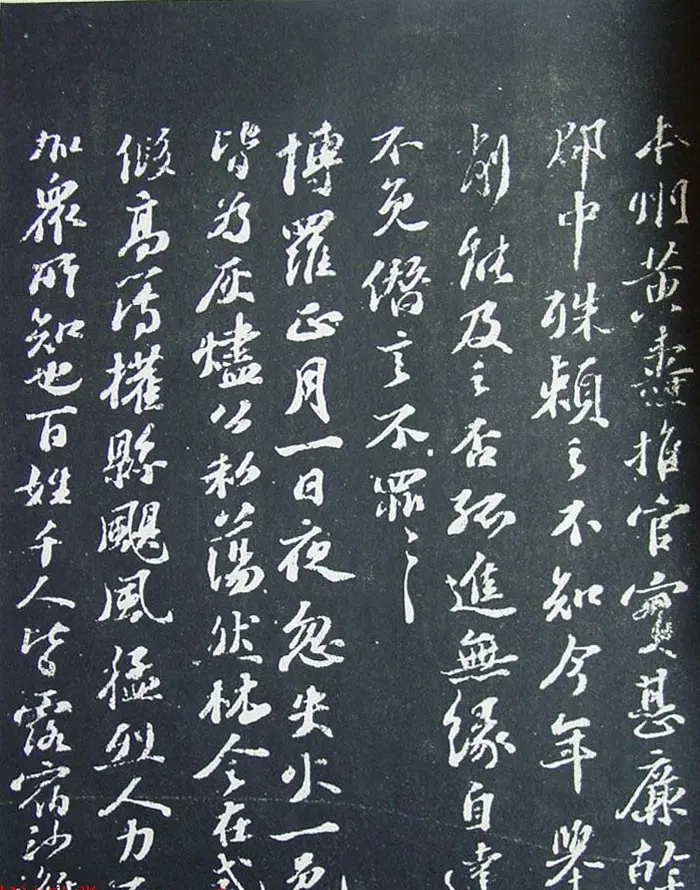 本州黄燾推官實甚廉幹
郡中殊賴之不知今年舉
削能及之否孤進無緣自達
不免僭言不罪〻
博羅正月一日夜忽失火一邑
皆為灰燼公私蕩然林令在式
假高簿權縣颶風猛烈人力不
加衆所知也百姓千人皆露宿沙